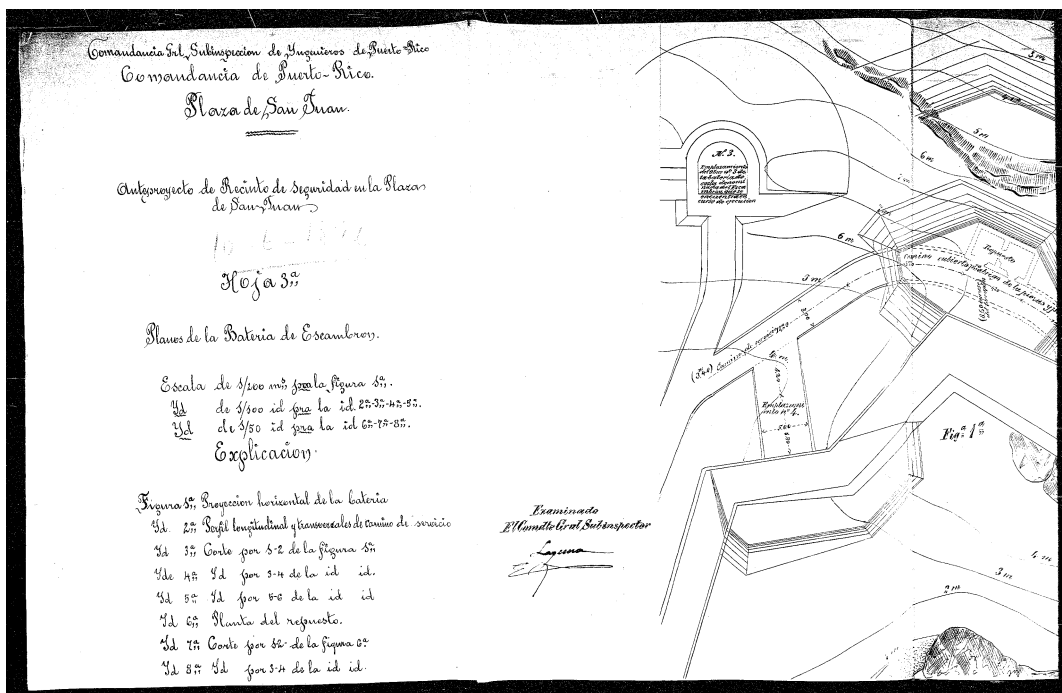 Comandancia Grl. Subinspeccion de Yngenieros de Puerto-Rico
Comandancia de Puerto-Rico.
Plaza de San Juan.
Anteproyecto de Recinto de seguridad en la Plaza
de San Juan
Hoja 3ª
Planos de la Bateria de Escambron.
Escala de 1/200 ms pra la figura 1ª.
Yd de 1/500 id pra la id. 2ª-3ª-4ª-5ª.
Yd de 1/50 id pra la id 6ª-7ª-8ª.
Explicación.
Figura 1ª Proyeccion horizontal de la bateria
Yd. 2ª Perfil longitudinal y transversales de camino de servicio
Yd 3ª Corte por 1-2 de la figura 1ª
Yde 4ª Yd por 3-4 de la id id.
Yd 5ª Yd por 5-6 de la id id
Yd 6ª Planta del repuesto.
Yd 7ª Corte por 12 de la figura 6ª
Yd 8ª Yd por 3-4 de la id id.
Examinado
El Comdte Gral. Subinspector
Laguna
N. 3.
Emplazamiento
del Obus nº 3 de
la bateria de
costa denomi
nada del Esca
mbron que se
encuentra en
curso de ejecucion
5 m
5 m
6 m
6 m
3 m
Repuesto
Camino cubierto
Camino de servicio
(3,40)
Emplazam
iento nº 4.
5,00
Figª 1ª
4 m
3 m
2 m